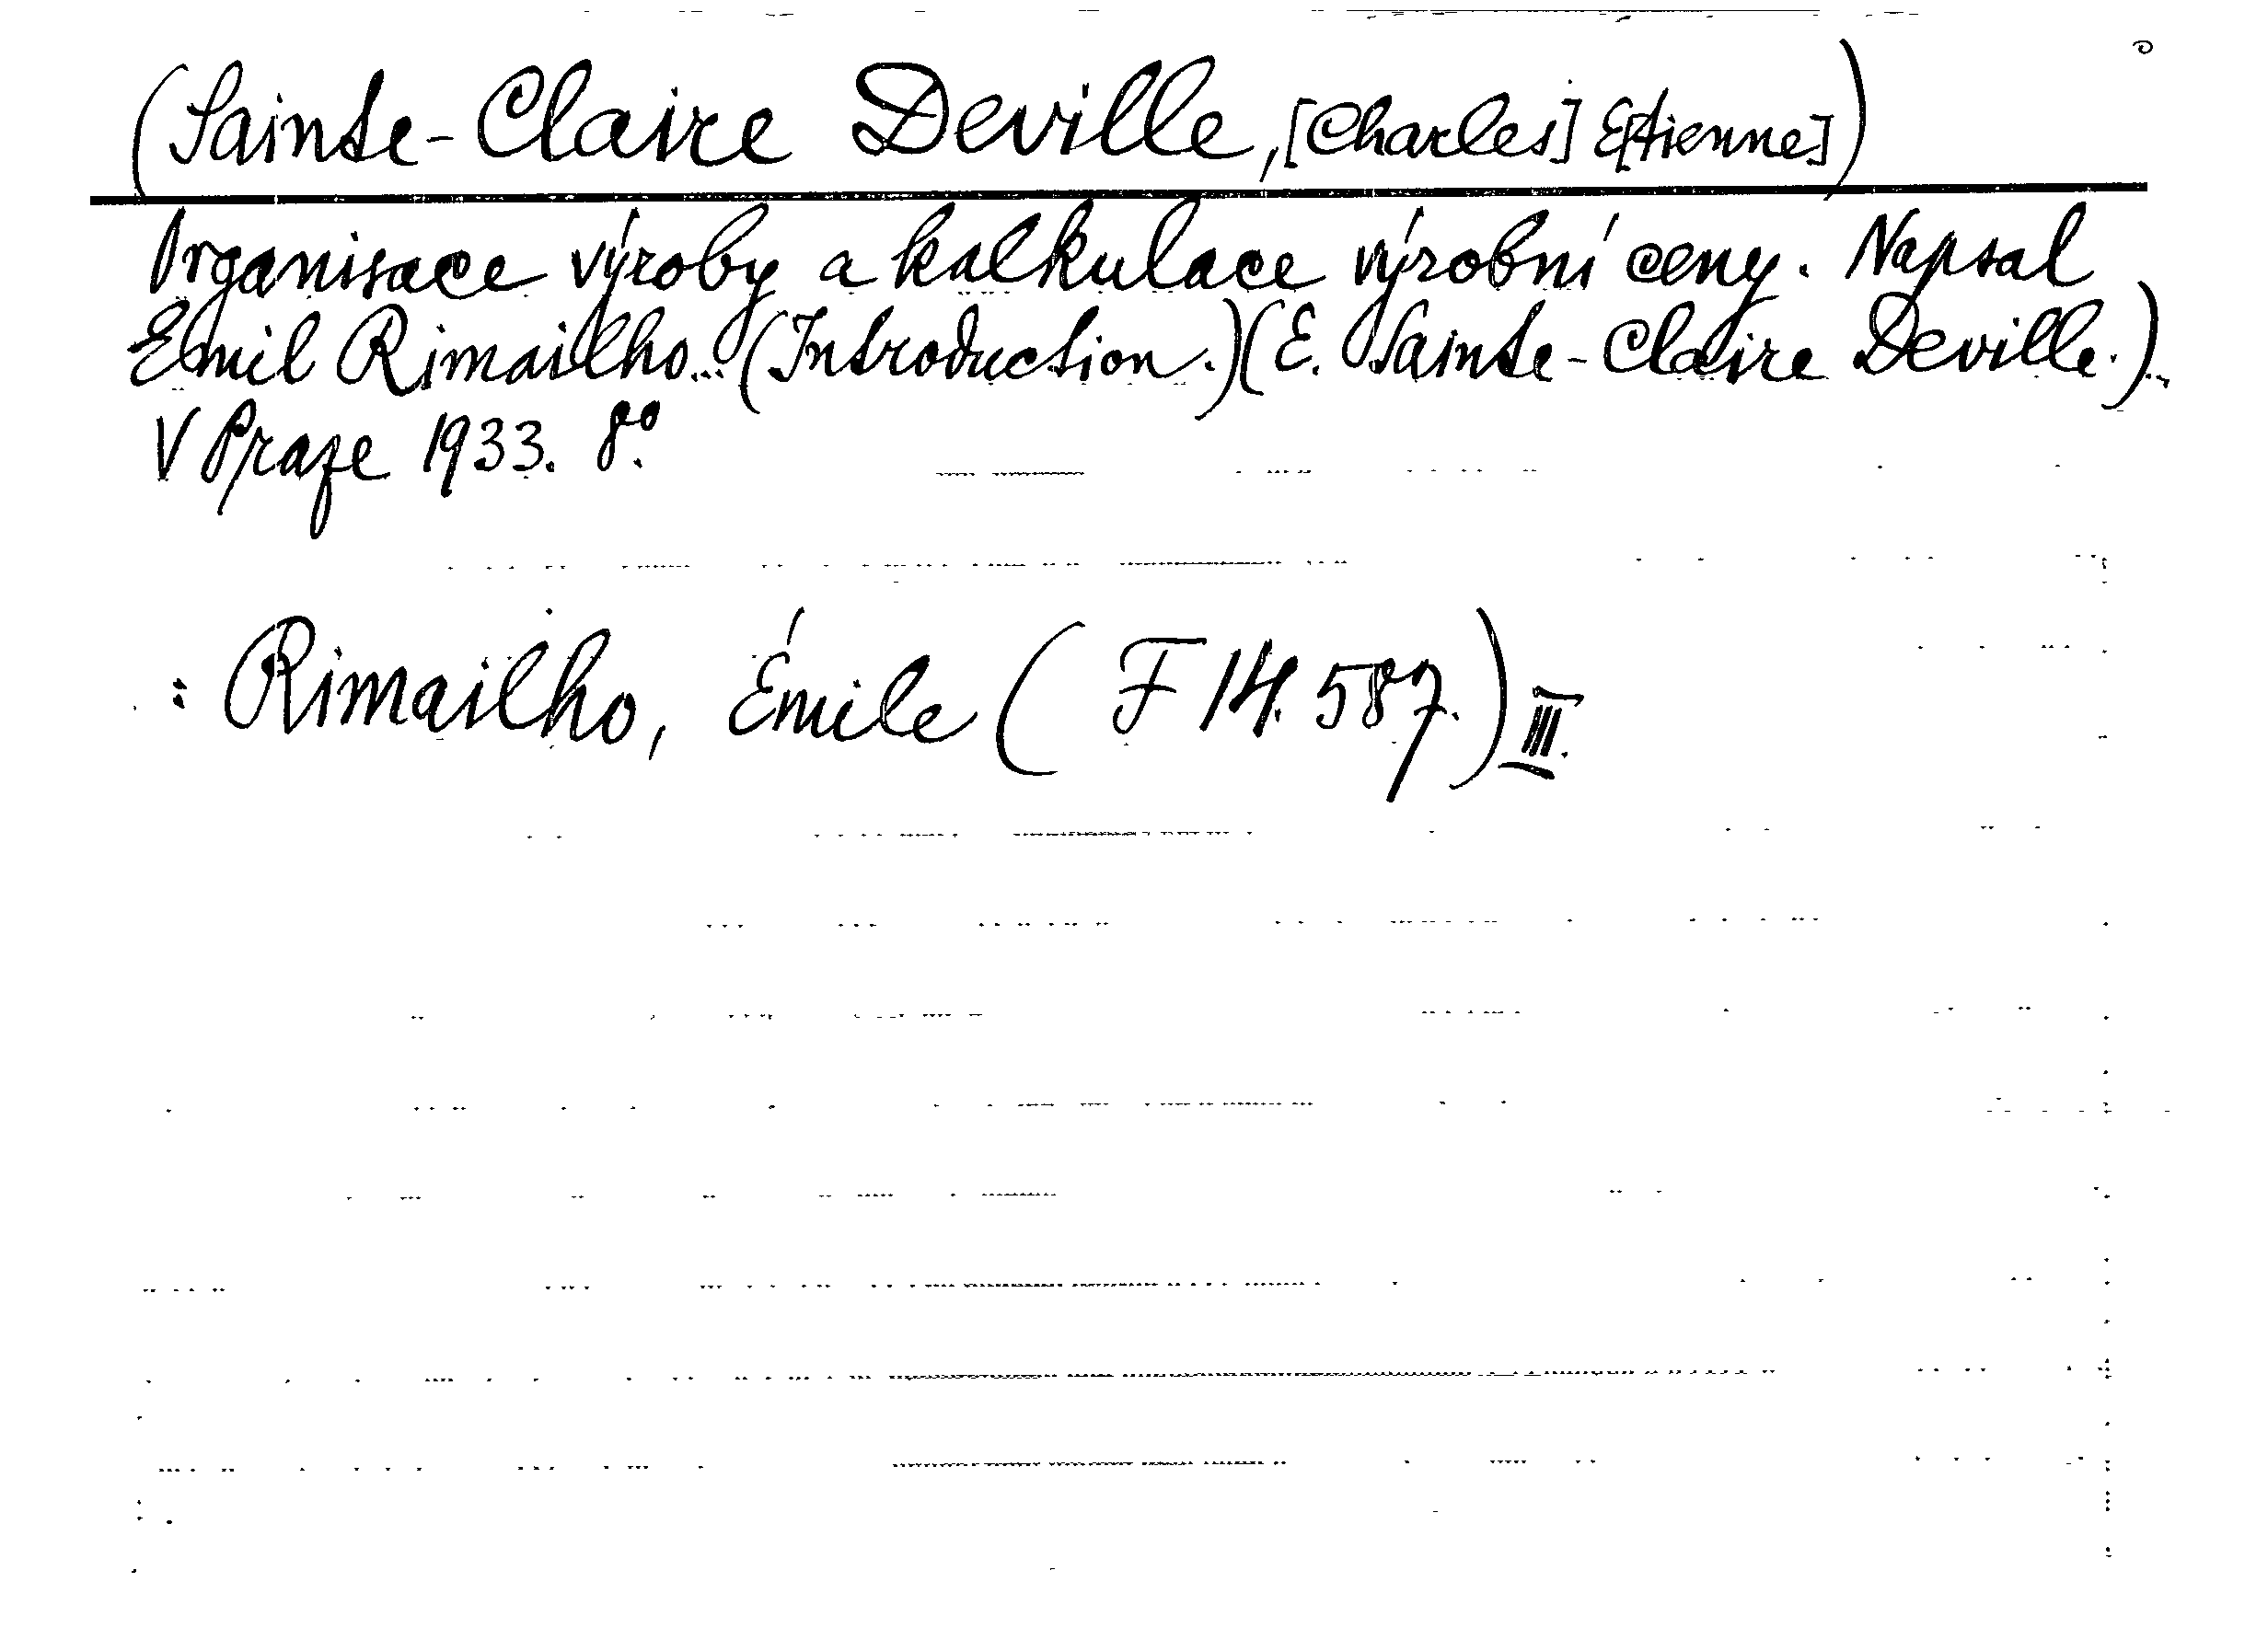 (Sainte-Claire Deville, [Charles] E[tienne])
Organisace výroby a kalkulace výrobní ceny. Napsal
Emil Rimailho... (Introduction.) (E. Sainte-Claire Deville.)..
V Praze 1933. 8º.
: Rimailho, Émile ( F 14.587.) III.